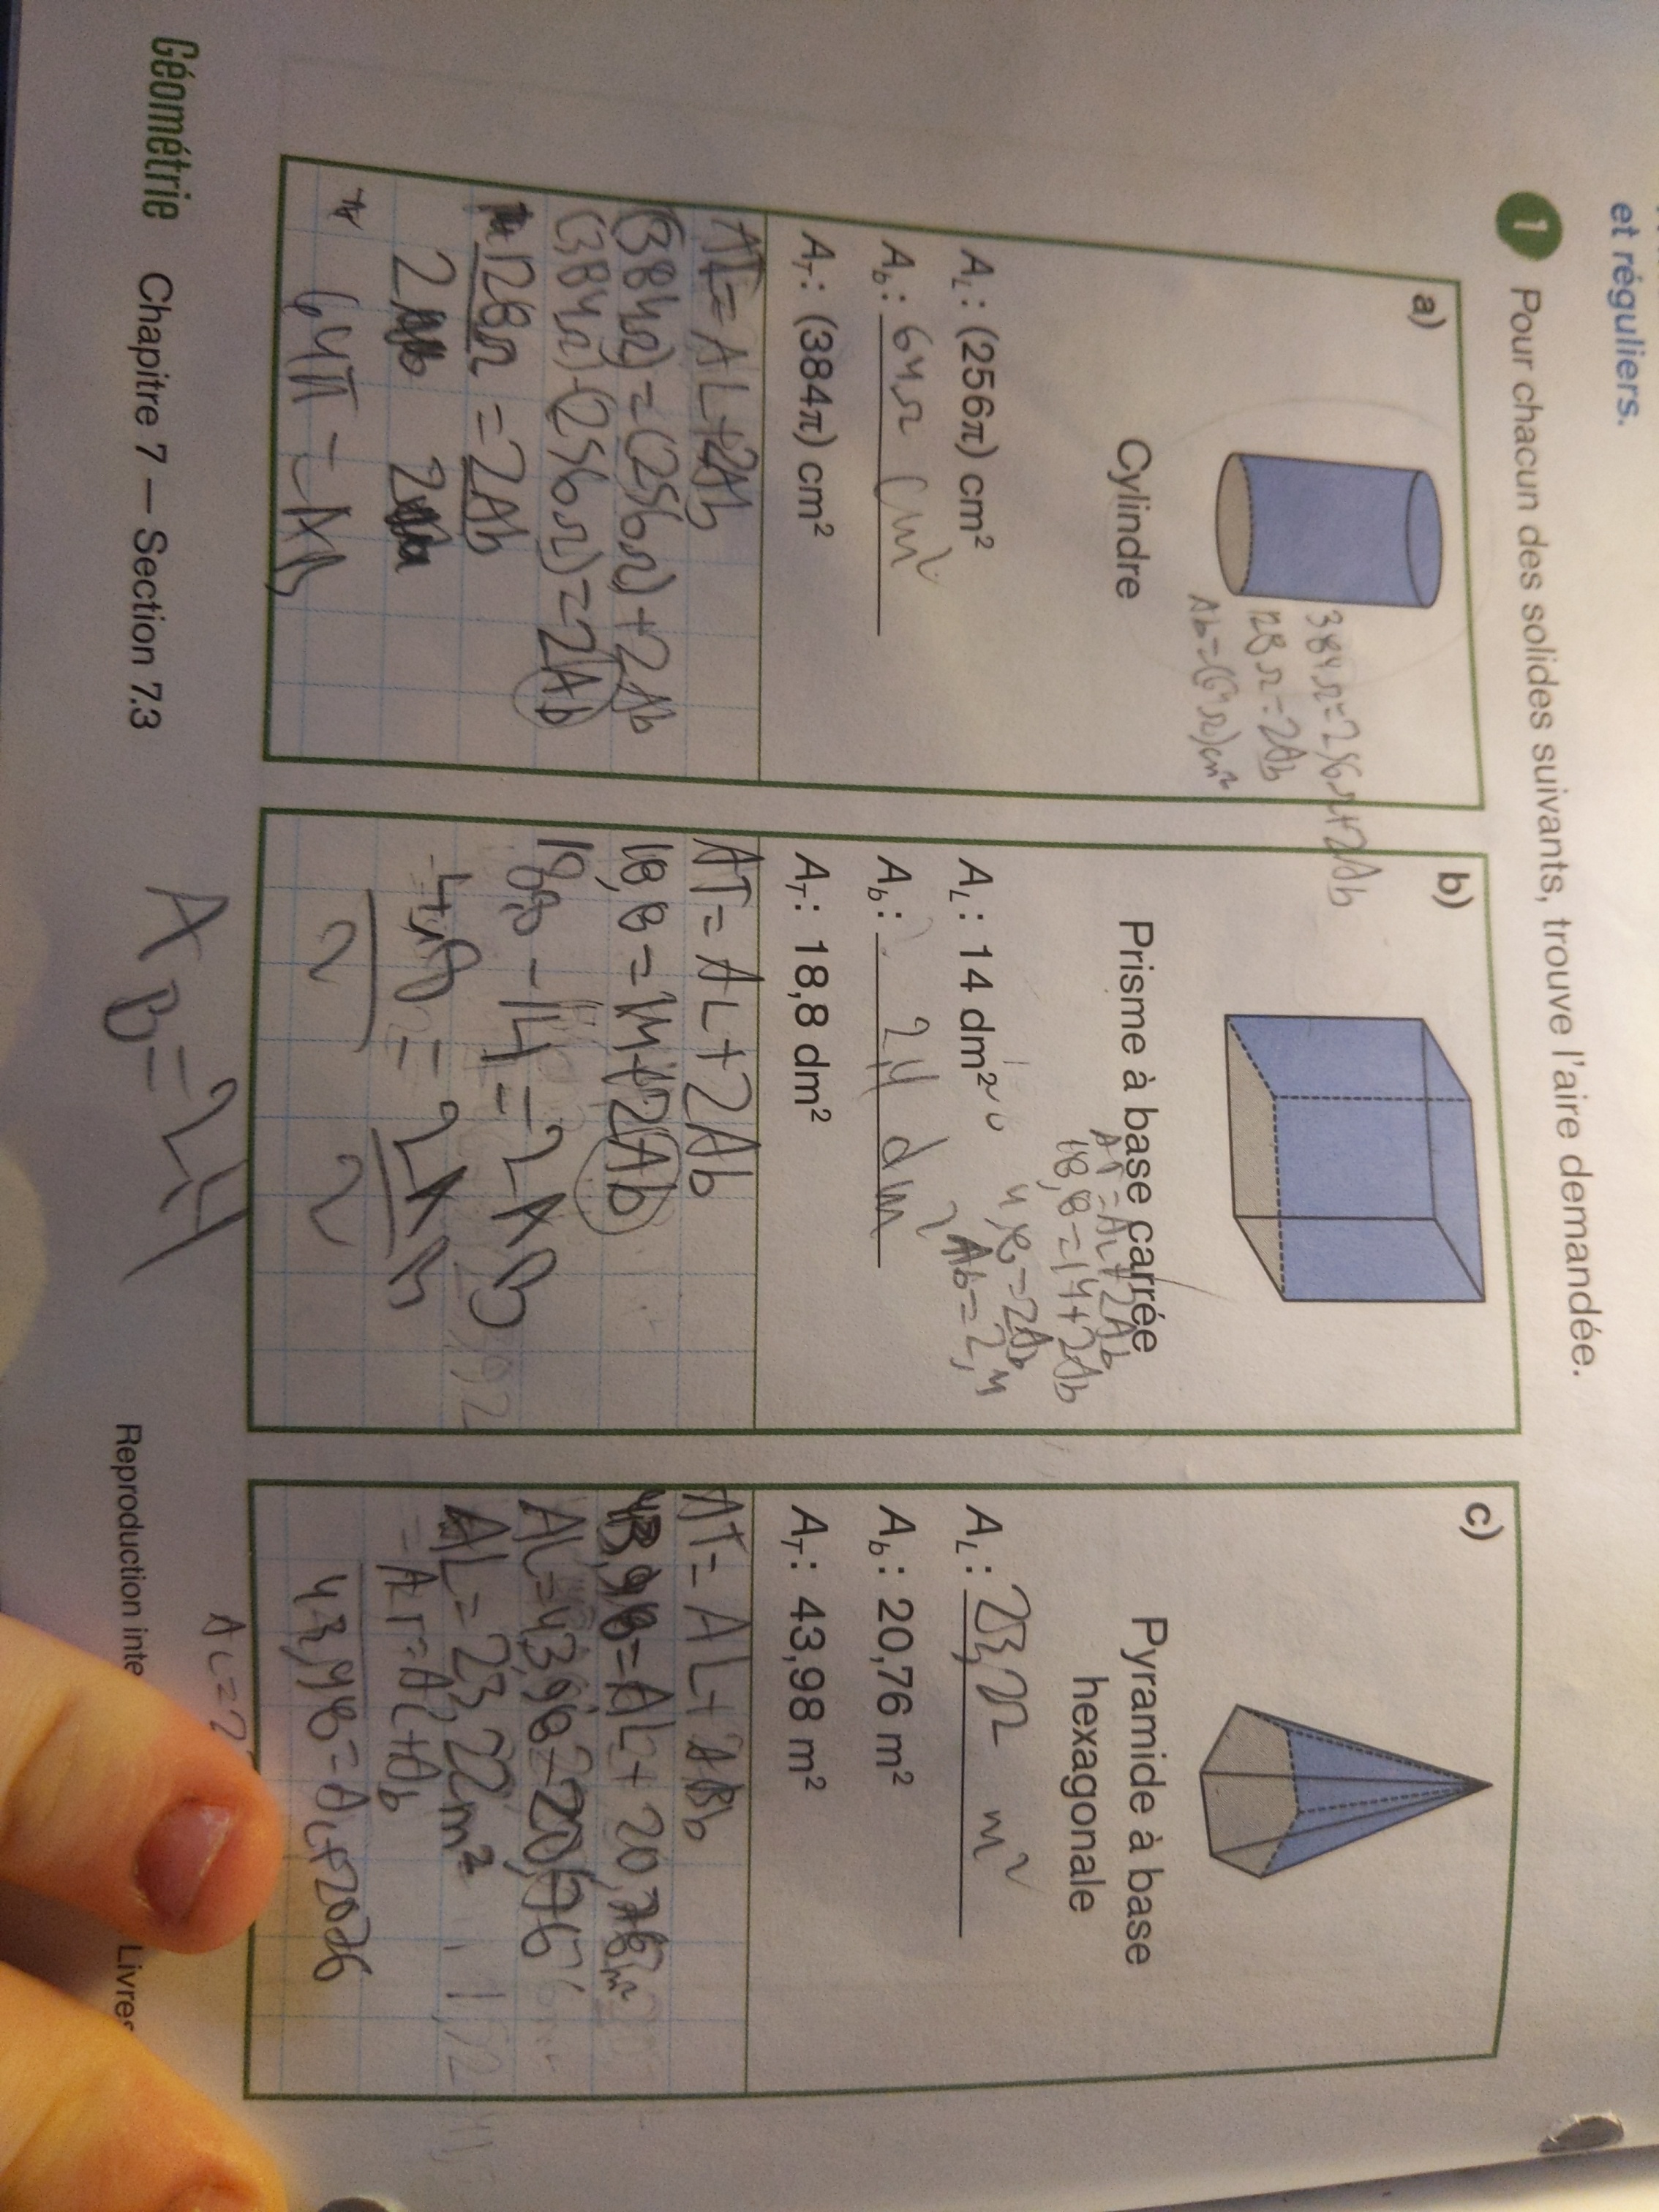 et réguliers.
1 Pour chacun des solides suivants, trouve l'aire demandée.
a)
384π = 256π + 2Ab
128π = 2Ab
Ab = (64π) cm²
Cylindre
A_L : (256π) cm²
A_b : 64π cm²
A_T : (384π) cm²
AT = AL + 2Ab
(384π) = (256π) + 2Ab
(384π) - (256π) = 2Ab
128π = 2Ab
2 2
64π = Ab
b)
Prisme à base carrée
AT = AL + 2Ab
18,8 = 14 + 2Ab
4,8 = 2Ab
Ab = 2,4
A_L : 14 dm²
A_b : 2,4 dm²
A_T : 18,8 dm²
AT = AL + 2Ab
18,8 = 14 + 2Ab
18,8 - 14 = 2AB
4,8 = 2AB
2 2
AB = 2,4
c)
Pyramide à base
hexagonale
A_L : 23,22 m²
A_b : 20,76 m²
A_T : 43,98 m²
AT = AL +
43,98 = AL + 20,76 m²
AL = 43,98 - 20,76
AL = 23,22 m²
AT = AL + Ab
43,98 = AL + 20,76
AL = 2
Géométrie Chapitre 7 — Section 7.3
Reproduction inte
Livres